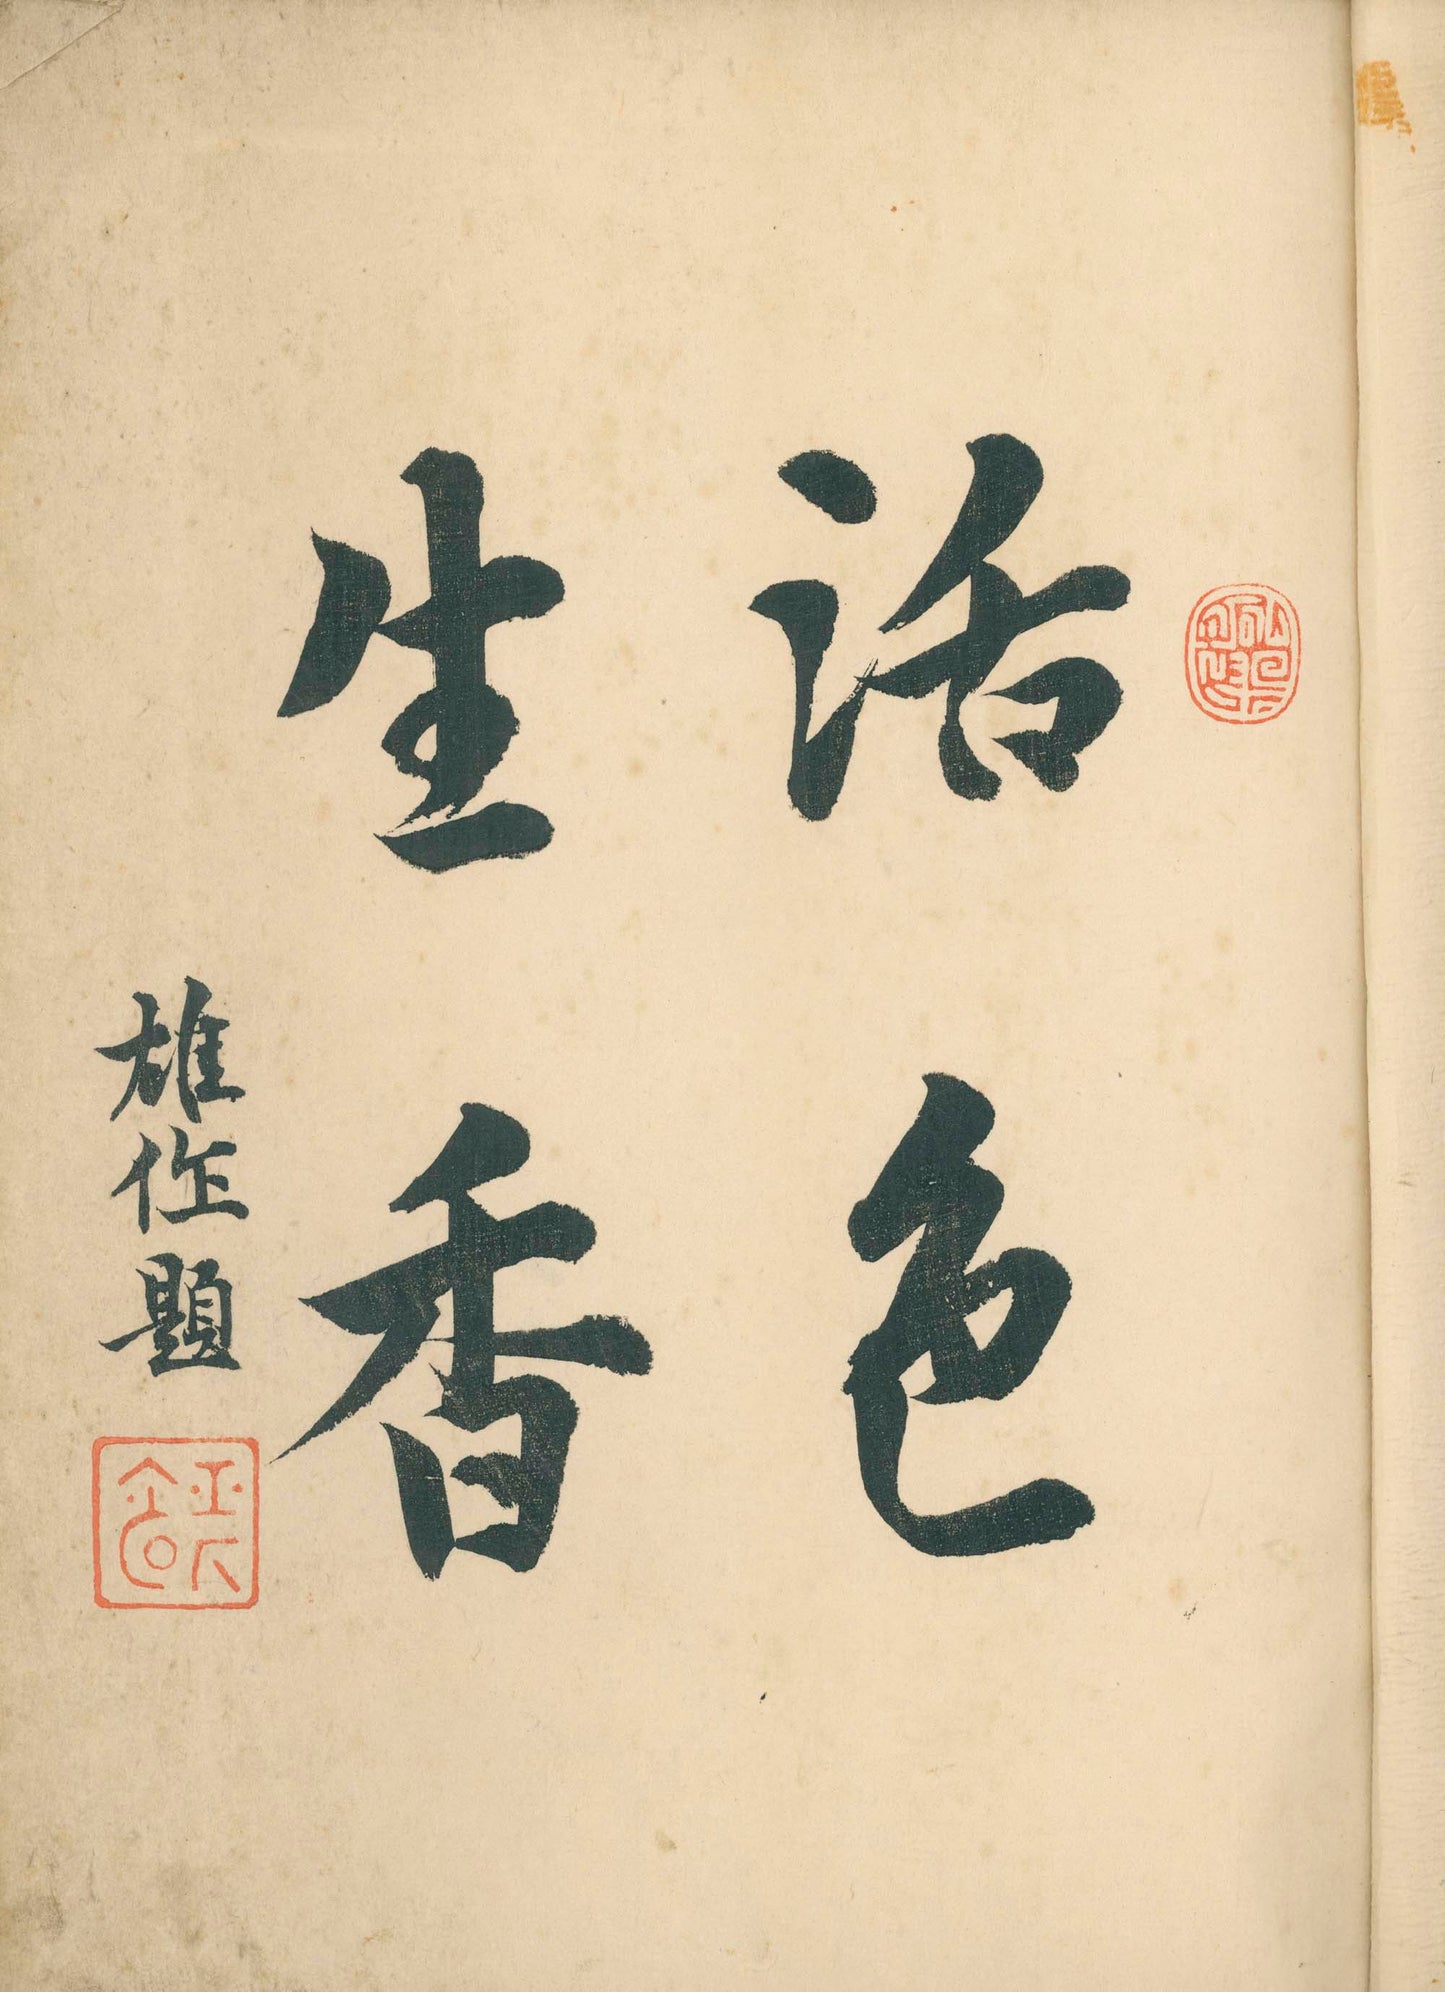 活色
生香
雄作題